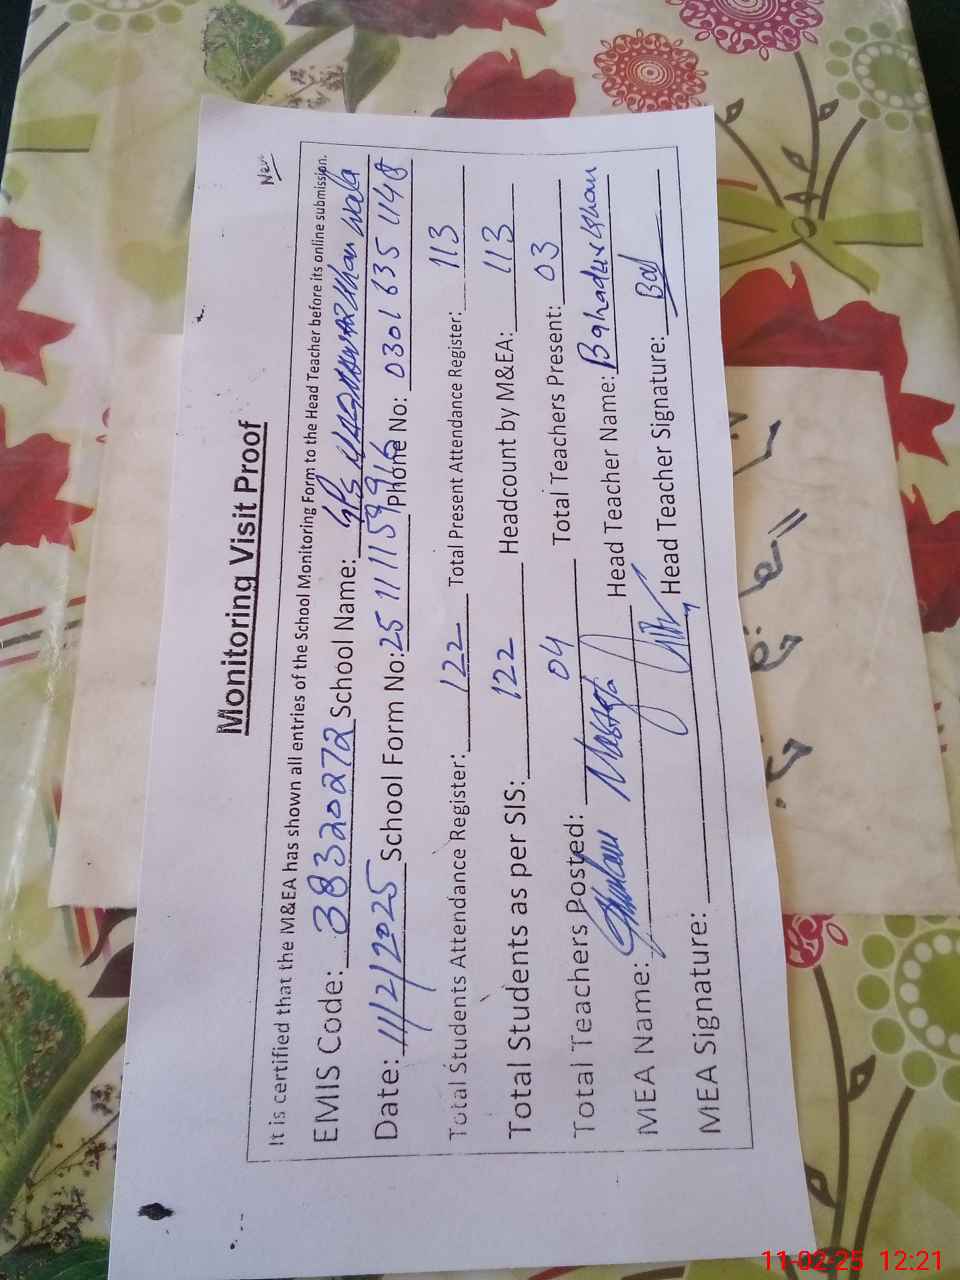 New
Monitoring Visit Proof
It is certified that the M&EA has shown all entries of the School Monitoring Form to the Head Teacher before its online submission.
EMIS Code: 38320272 School Name: GPS
Date: 11/2/2025 School Form No: 25111159916 Phone No: 0301 635 1148
Total Students Attendance Register: 122 Total Present Attendance Register: 113
Total Students as per SIS: 122 Headcount by M&EA: 113
Total Teachers Posted: 04 Total Teachers Present: 03
MEA Name: Ghulam Head Teacher Name: Bahadur Khan
MEA Signature: Head Teacher Signature:
11-02-25 12:21